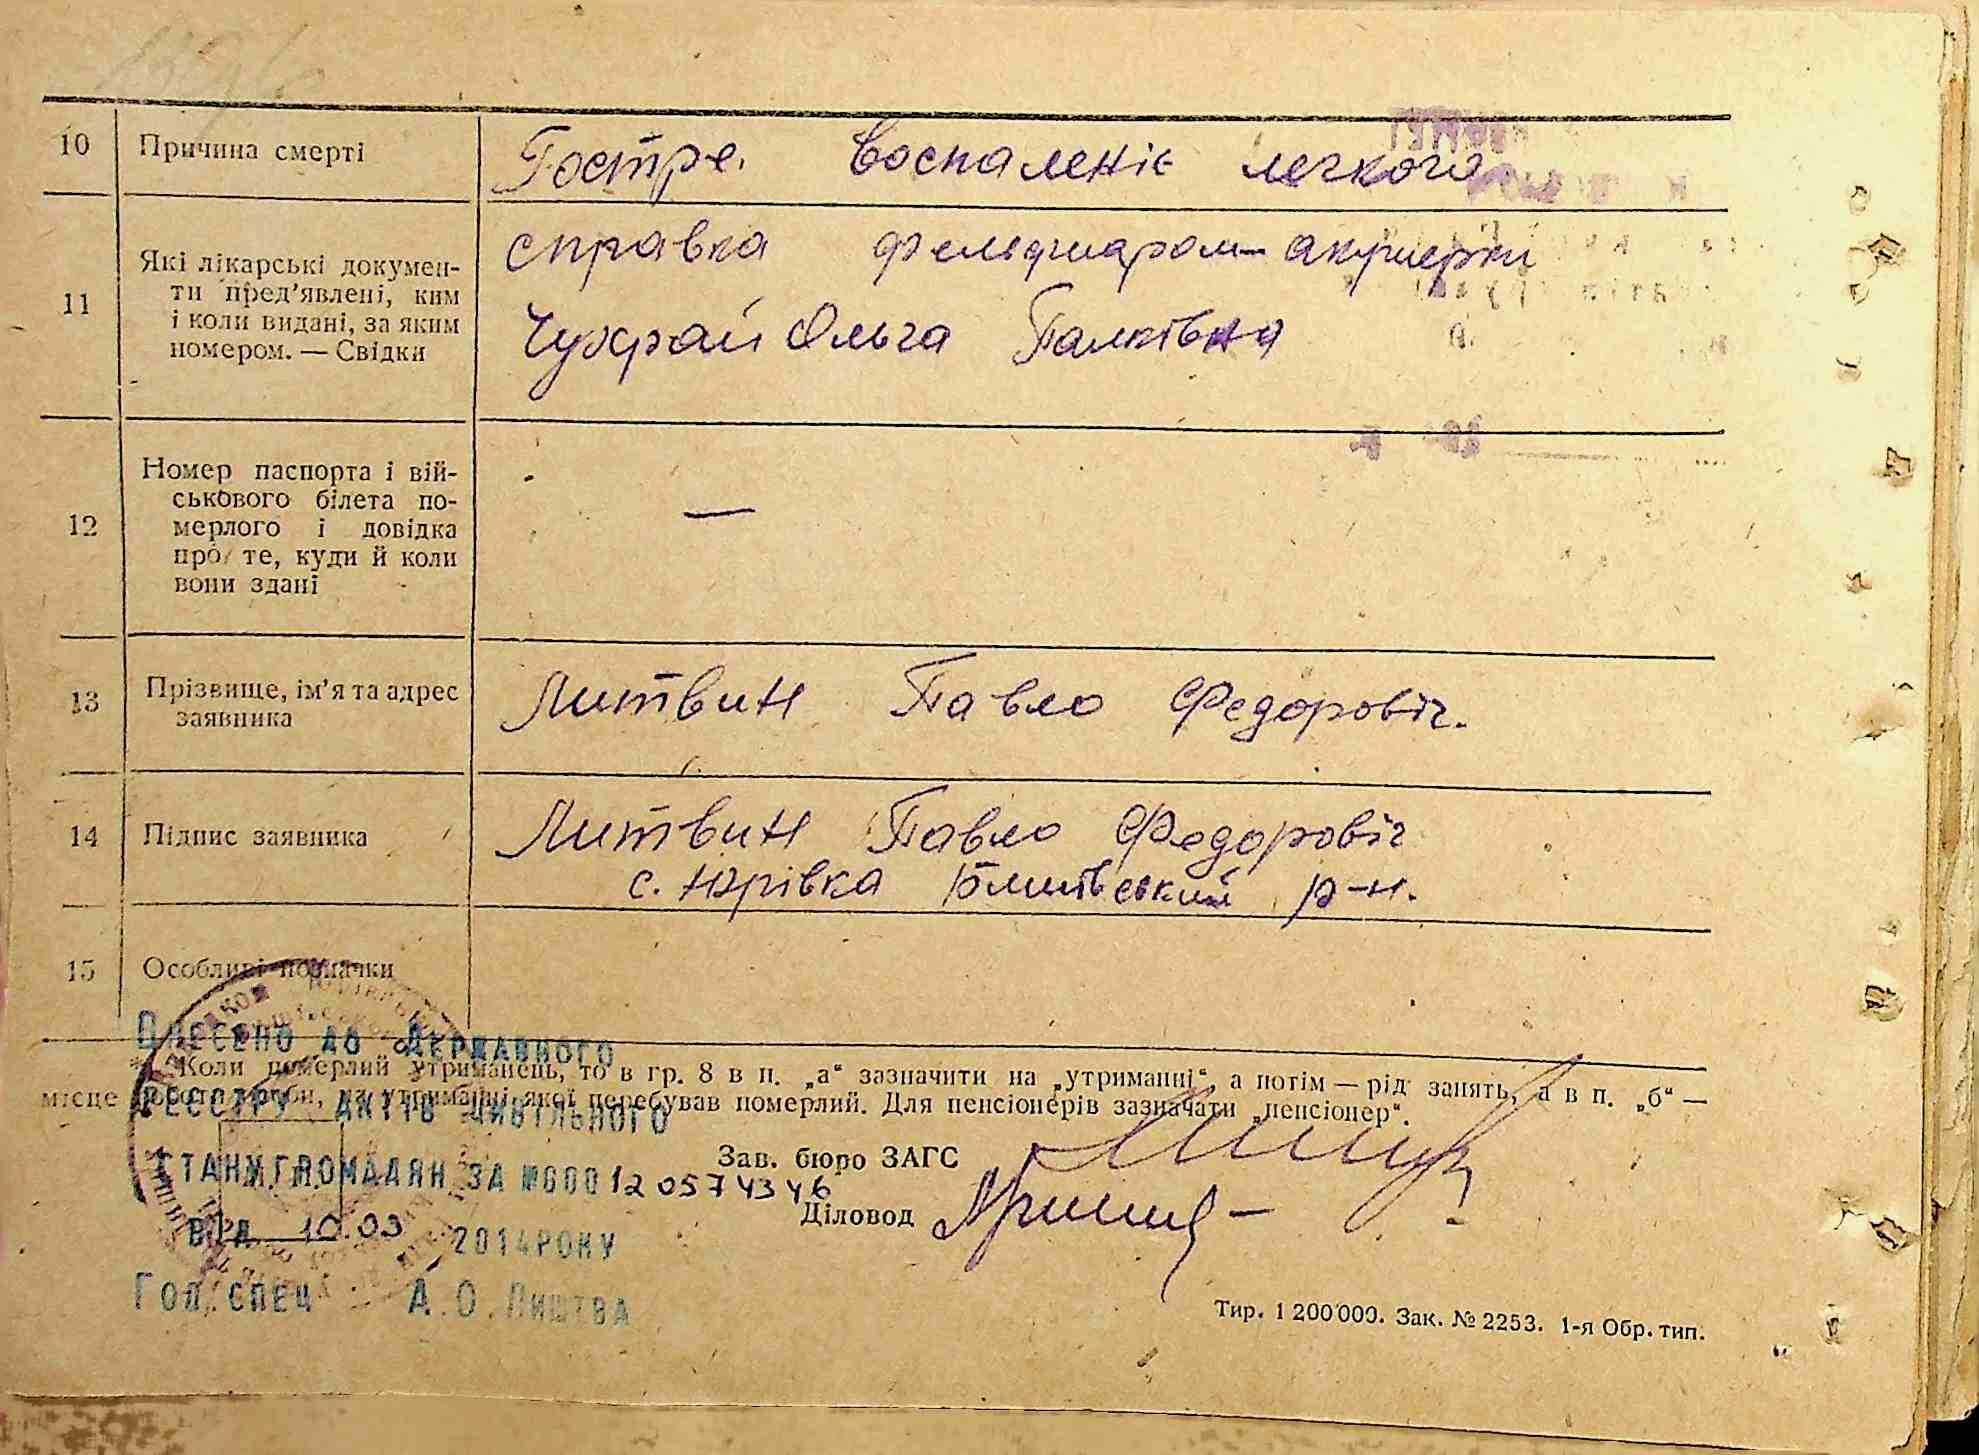 10 Причина смерті Гостре. Воспаленіє легкого
11 Які лікарські докумен-
ти пред’явлені, ким
і коли видані, за яким
номером. — Свідки
справка фельдшаром-акушерки
Чухрай Ольга
12 Номер паспорта і вій-
ськового білета по-
мерлого і довідка
про те, куди й коли
вони здані
—
13 Прізвище, ім’я та адрес
заявника
Литвин Павло Федоровіч.
14 Підпис заявника
Литвин Павло Федоровіч
с. Юрівка р-н.
15 Особливі позначки
Внесено до Державного
* Коли померлий утриманець, то в гр. 8 в п. „а“ зазначити на „утриманні“, а потім — рід занять, а в п. „б“ —
місце роботи особи, на утриманні якої перебував померлий. Для пенсіонерів зазначати „пенсіонер“.
реєстру актів цивільного
Зав. бюро ЗАГС
стану громадян за №000120574346
Діловод
від 10.03 2014 року
Гол. спец А.О. Лиштва
Тир. 1 200 000. Зак. № 2253. 1-я Обр. тип.